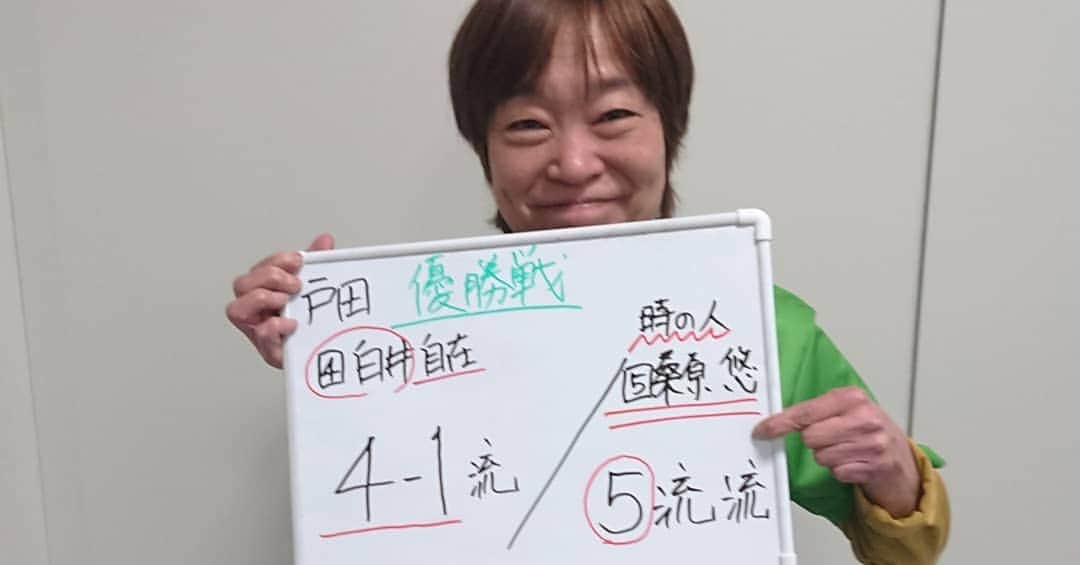 戸田 優勝戦
④白井自在
4-1流
時の人
⑤桑原悠
⑤流流